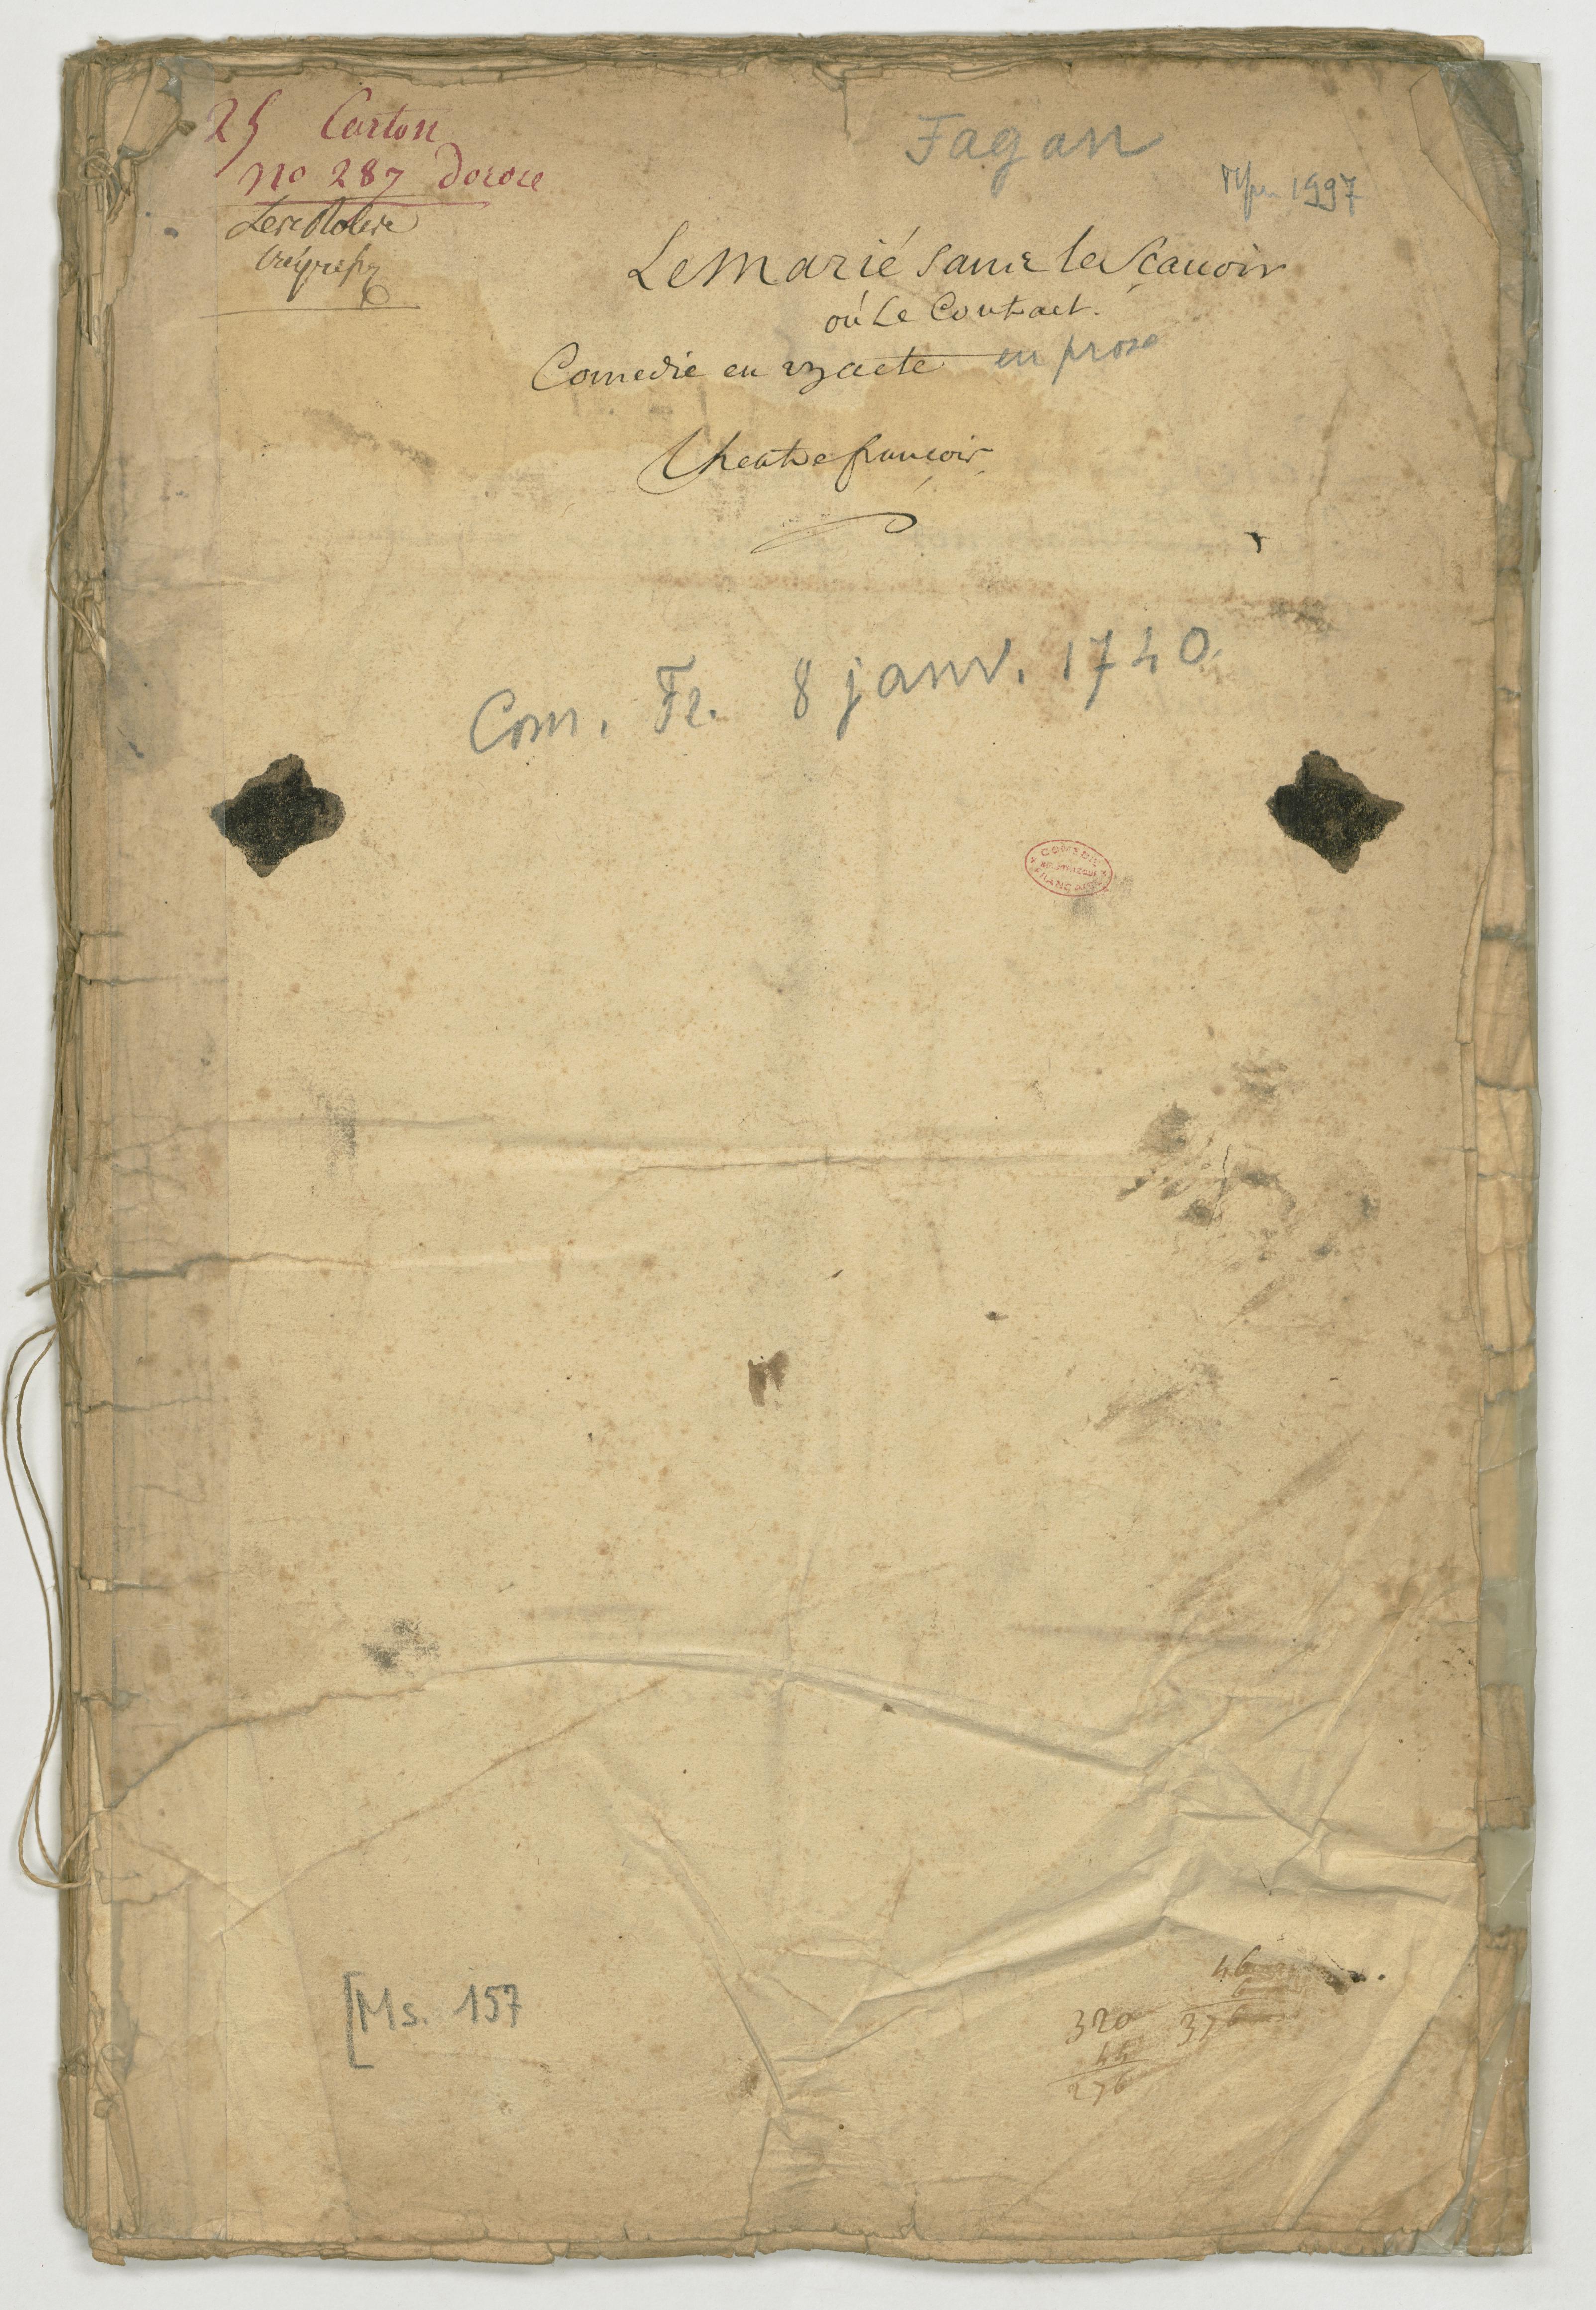 25 Carton
no 287
Les Rolles
Fagan
1997
Le Marié sans le Scauoir
ou Le Contract.
Comedie en un acte en prose
Theatre françois
Com. Fr. 8 janv. 1740.
COMÉDIE
FRANÇAISE
[Ms. 157
46
6
320 376
45
276